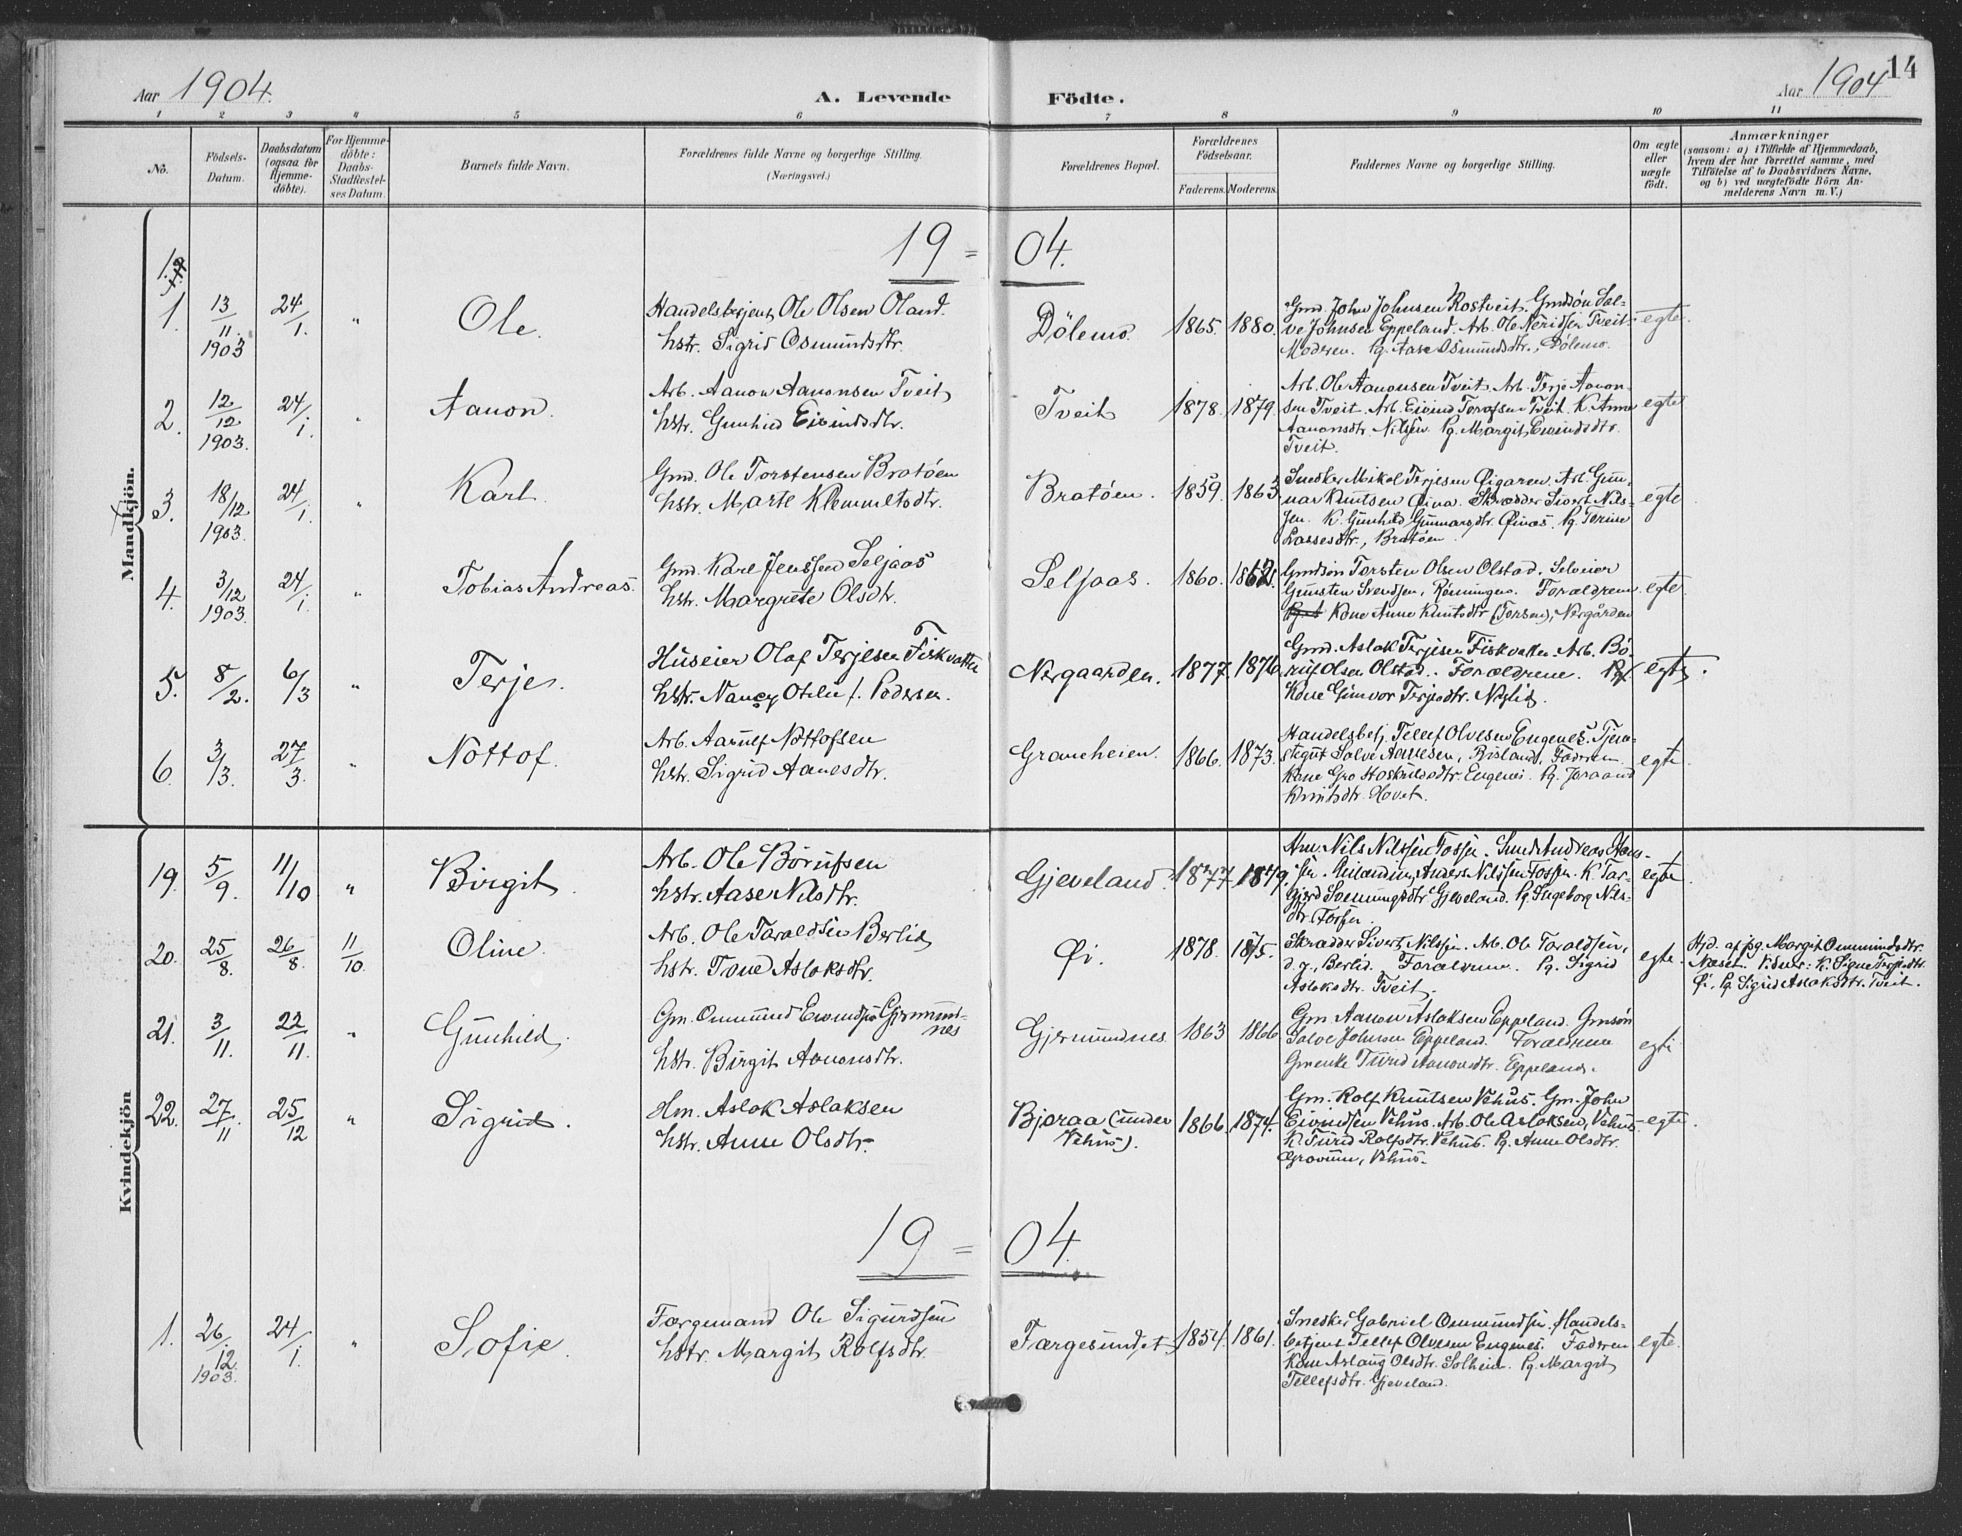 Aar 1904. A. Levende Födte. Aar 1904 14
1 2 3 4 5 6 7 8 9 10 11
No.
Födsels-
Datum.
Daabsdatum
(ogsaa for
hjemme-
döbte).
For Hjemme-
döbte:
Daabs-
Stadfestel-
ses Datum
Barnets fulde Navn.
Forældrenes fulde Navne og borgerlige Stilling.
(Næringsvei.)
Forældrenes Bopæl.
Forældrenes
Födselsaar.
Faderens. Moderens.
Faddernes Navne og borgerlige Stilling.
Om ægte
eller
uægte
födt.
Anmærkninger
(saasom: a) i Tilfælde af Hjemmedaab,
hvem der har forrettet samme, med
Tilföielse af to Daabsvidners Navne,
og b) ved uægtefödte Börn An-
melderens Navn m. V.)
Mandkjön.
19 = 04.
1. 13/11. 1903 24/1. " Ole. Handelsbetjent Ole Olsen Oland.
hstr. Sigrid Osmundsdtr.
Dölemo. 1865. 1880.
Gmd. John Johnsen Rostveit, Gmdsön Sal-
ve Johnsen Eppeland. Arb. Ole Neridsen Tveit.
Moderen. Pg. Aase Osmundsdtr., Dölemo.
egte.
2. 12/12 1903. 24/1. " Aanon. Arb. Aanon Aanonsen Tveit,
hstr. Gunhild Eivindsdtr.
Tveit 1878. 1879.
Arb. Ole Aanonsen Tveit. Arb. Terje Aanon-
sen Tveit. Arb. Eivind Torafsen Tveit. K. Anne
Aanonsdtr. Nilsen. Pg. Margit Eivindsdtr.
Tveit.
egte
3. 18/12 1903. 24/1. " Karl. Gmd. Ole Torstensen Bratöen
hstr. Marte Klemmetsdtr.
Bratöen. 1859. 1863.
Snedker Mikal Terjesen Öigaren. Arb. Gun-
nar Knutsen Öina. Skrædder Sivert Nils-
sen. K. Gunhild Gunnarsdtr. Öinas. Pg. Terine
Lassesdtr., Bratöen.
egte
4. 3/12 1903. 24/1. " Tobias Andreas. Gmd. Karl Jenssen Seljaas
hstr. Margrete Olsdtr.
Seljaas. 1860.
Gmdsön Torsten Olsen Olstad. Selveier
Gunsten Svendsen, Rönningen. Forældrene.
Kone Anne Knutsdtr. (Torsen), Nergården
egte.
5. 8/2. 6/3 " Terje. Huseier Olaf Terjesen Fiskvatn
hstr. Nancy Otilie f. Pedersen.
Nergaarden. 1877. 1876.
Gmd. Aslak Terjesen Fiskvatn. Arb. Bö-
rulf Olsen Olstad. Forældrene.
Kone Gunvor Terjesdtr. Nylid.
egte.
6. 3/3. 27/3. " Nottof. Arb. Aanulf Nottofsen
hstr. Sigrid Aanesdtr.
Graneheien. 1866. 1873.
Handelsbetj. Tellef Olvesen Engenes. Tjene-
stegut Salve Aanesen, Risland, Fadren
Kone Gro Hoskuldsdtr. Engenes. Pg. Joraand
Knutsdtr. Hovet.
egte
Kvindekjön
19. 5/9. 11/10 " Birgit. Arb. Ole Börufsen
hstr. Aase Nilsdtr.
Gjeveland. 1877. 1879.
Hm. Nils Nilssen Fossen. Smed Andreas Han-
sen. Anders Nilssen Fossen. K. Tar-
gjerd Sveinungsdtr. Gjeveland. Pg. Ingeborg Nils-
dtr. Fossen.
egte
20. 25/8. 26/8. 11/10. Oline. Arb. Ole Taraldsen Berlid
hstr. Tone Aslaksdtr.
Öi. 1878. 1875.
Skrædder Sivert Nilssen. Arb. Ole Taraldsen,
d.y., Berlid. Forældrene. Pg. Sigrid
Aslaksdtr. Tveit.
egte.
Hjd. af jpg. Margit Ommundsdtr.
Næset. Vidner: K. Signe Terjesdtr.
Öi. Pg. Sigrid Aslaksdtr. Tveit.
21. 3/11. 22/11. " Gunhild. Gm. Ommund Eivindsen Gjermund-
nes
hstr. Birgit Aanonsdtr.
Gjermundnes 1863 1866
Gm. Aanon Aslaksen Eppeland. Gmsön
Salve Johnsen Eppeland. Forældrene
Gmenke Turid Aanonsdtr. Eppeland.
egte
22. 27/11. 25/12 " Sigrid. Hm. Aslak Aslaksen
hstr. Anne Olsdtr.
Bjoraa (under
Vehus). 1866. 1874.
Gm. Rolf Knutsen Vehus. Gm. John
Eivindsen Vehus. Arb. Ole Aslaksen, Vehus.
K. Turid Rolfsdtr. Vehus. Pg. Anne Olsdtr.
Grovum, Vehus.
egte.
19 = 04.
1. 26/12. 1903. 24/1. " Sofie. Færgemand Ole Sigurdsen
hstr. Margit Rolfsdtr.
Færgesundet. 1854. 1861.
Snedker Gabriel Ommundsen. Handels-
betjent Tellef Olvesen Engenes. Fadren
Kone Aslaug Olsdtr. Solheim. Pg. Margit
Tellefsdtr. Gjeveland.
egte.